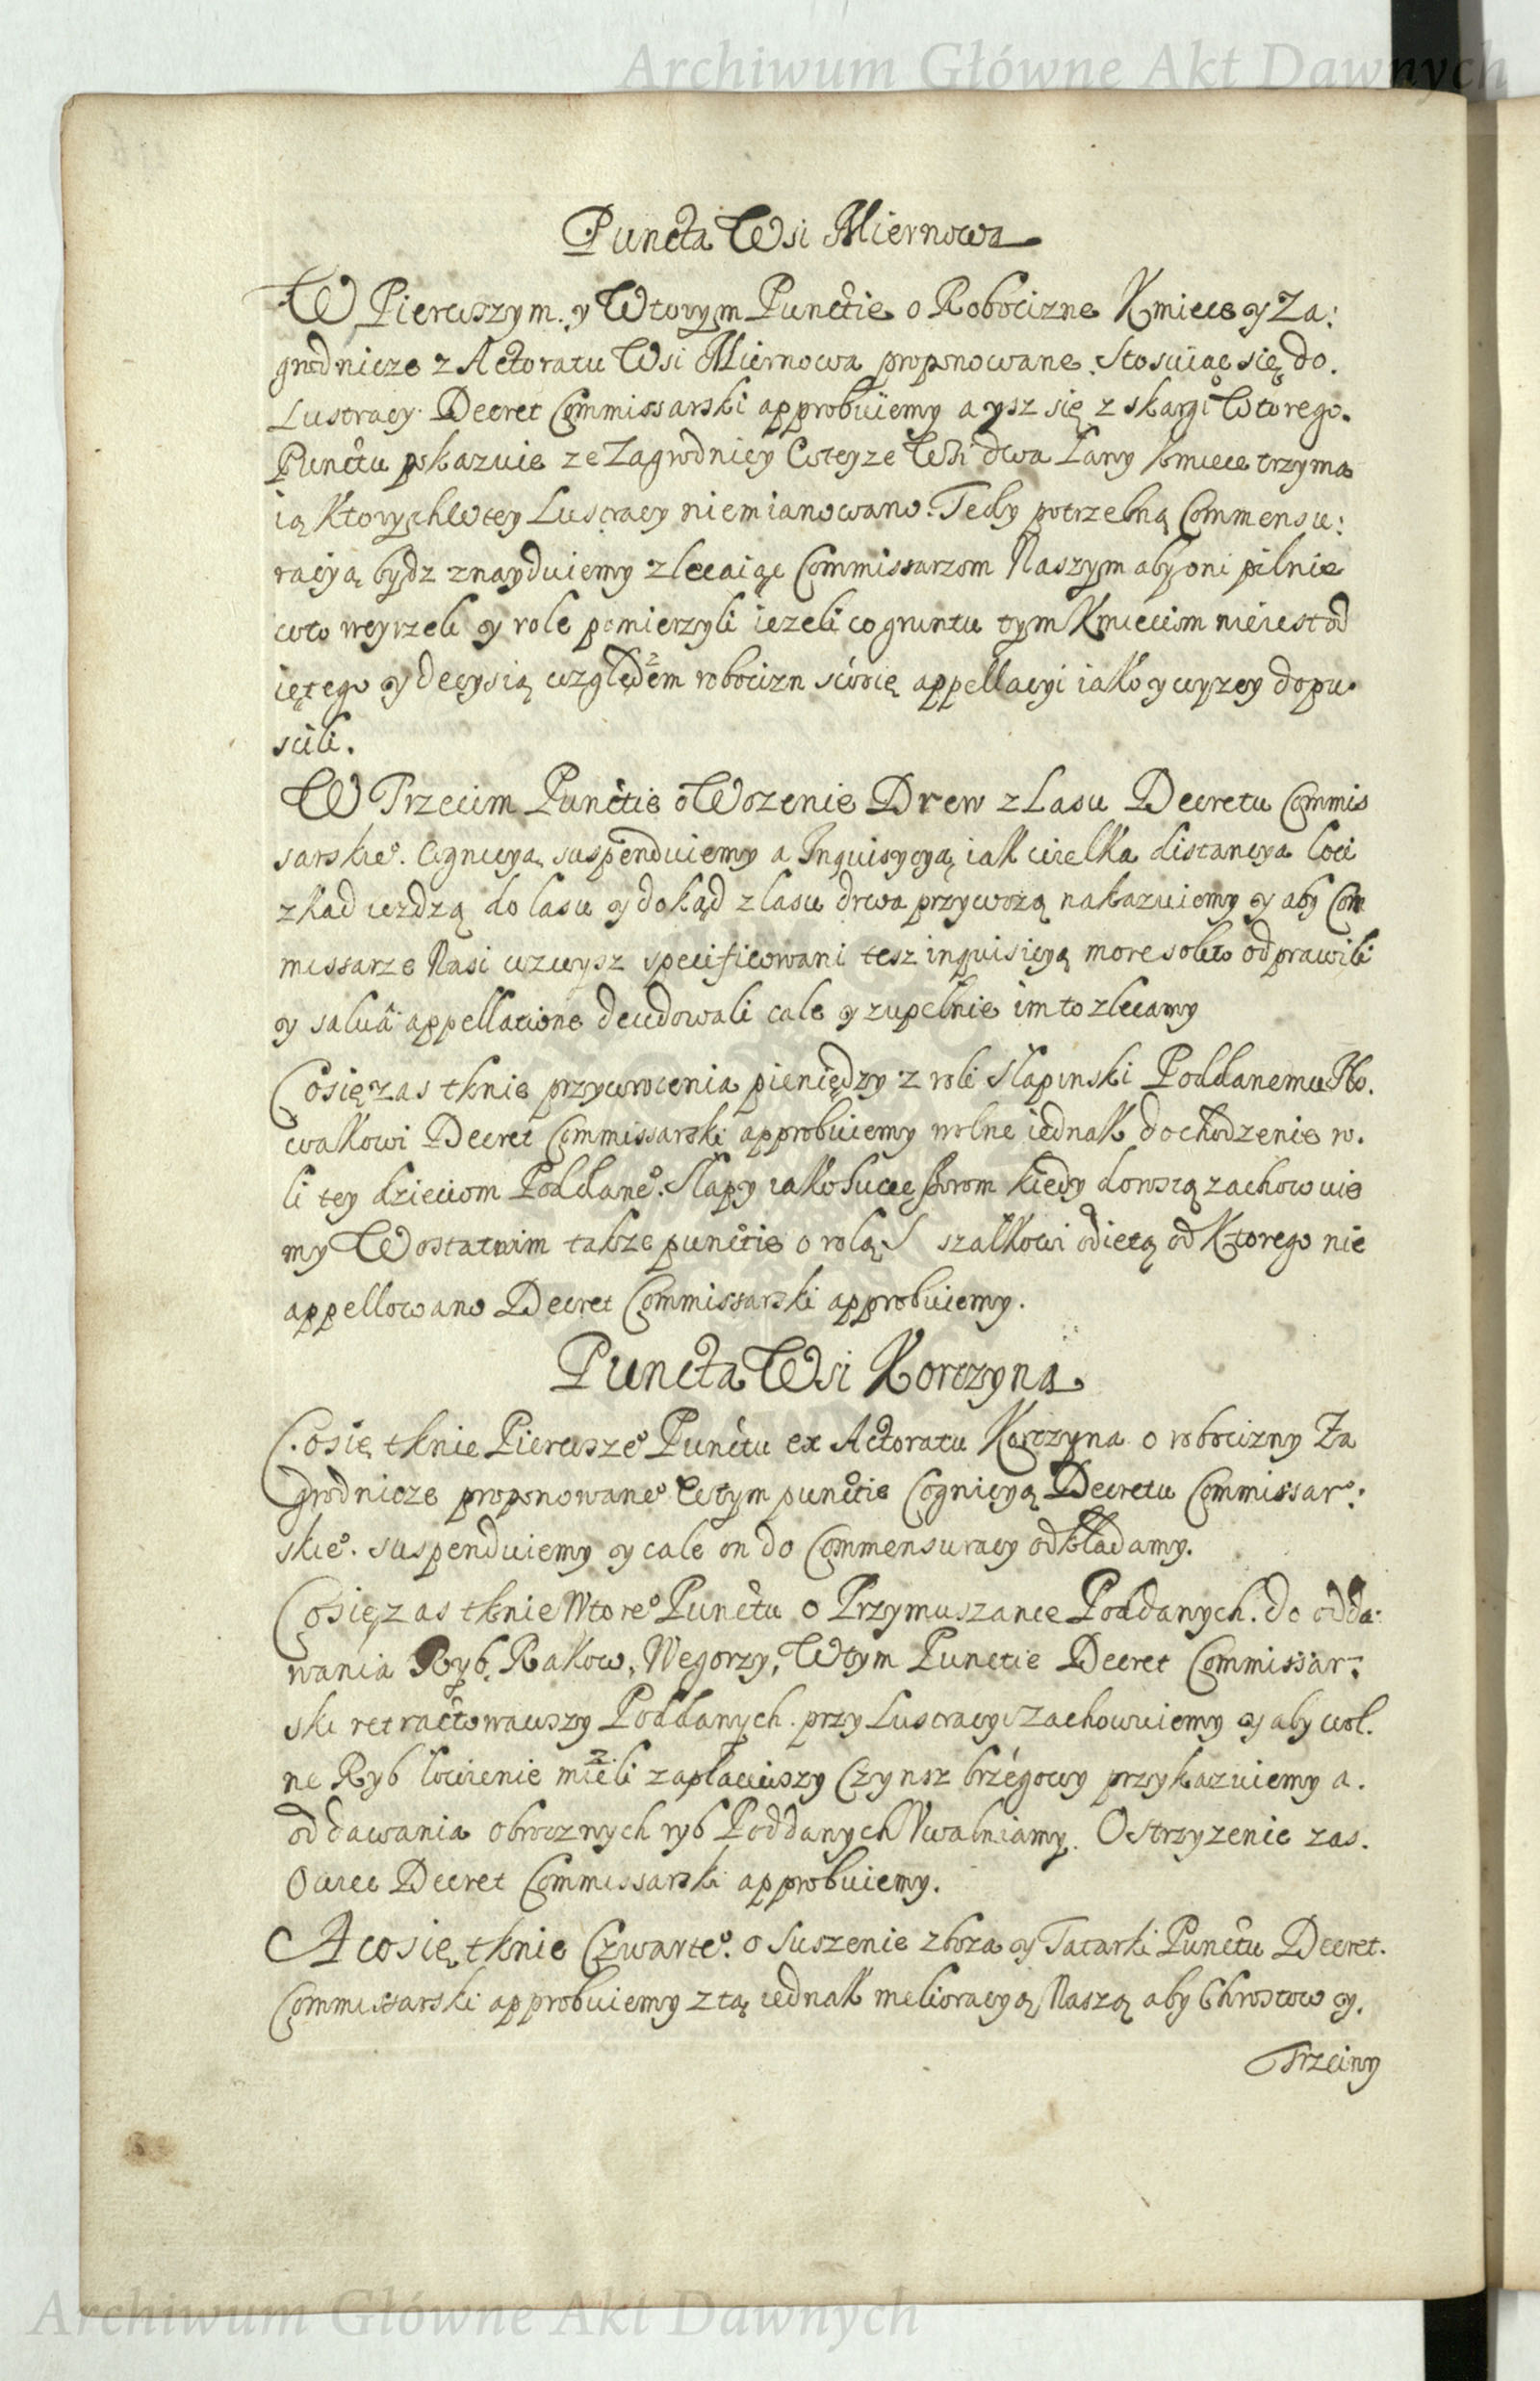 Archiwum Główne Akt Dawnych
Puncta Wsi Miernowa
W Pierwszym y Wtorym Punctie o Robocizne Kmiece y Za:
grodnicze z Actoratu Wsi Miernowa proponowane. Stosuiąc się do.
Lustracy Decret Commissarski approbuiemy a ysz się z skargi Wtorego.
Punctu pokazuie ze Zagrodnicy Wteyze Wsi dwa Łany kmiece trzyma
ią Ktorych Wtey Lustracy niemianowano. Tedy potrzebną Commensu:
racyą bydz znayduiemy zlecaiąc Commissarzom Naszym aby oni pilnie
wto weyrzeli y role pomierzyli iezeli co gruntu tym Kmieciom nieiest od
iętego y decysią względem robocizn appellacyi iako y wyzey dopu
scili.
W Trzecim Punctie o Wozenie Drew z Lasu Decretu Commis
sarskieo. Cognicyą suspenduiemy a Inquisycyą iak wielka distancya loci
zkad iezdzą do lasu y dokąd z lasu drwa przywozą nakazuiemy y aby Com
missarze Nasi wzwysz specificowani tesz inquisicyą more solito odprawili
y salvâ appellatione decidowali cale y zupełnie im to zlecamy
Cosięzas tknie przywrocenia pieniędzy z roli Słapinski Poddanemu No.
wakowi Decret Commissarski approbuiemy wolne iednak dochodzenie ro.
li tey dzieciom Poddaneo. Słapy iako Successorom kiedy dorosłą zachowuie
my W ostatnim takze punctie o rolą S szalkowi odietą od Ktorego nie
appellowano Decret Commissarski approbuiemy.
Puncta Wsi Korczyna
Cosię tknie Pierwszeo Punctu ex Actoratu Korczyna o robocizny Za
grodnicze proponowaneo Wtym punctie Cognicyą Decretu Commissar:
skieo. suspenduiemy y cale on do Commensuracy odkładamy.
Cosięzas tknie Wtoreo Punctu o Przymuszanie Poddanych. do odda:
wania Ryb, Rakow, Wegorzy, Wtym Punctie Decret Commissar:
ski retractowawszy Poddanych. przy Lustracyi zachowuiemy y aby wol.
ne Ryb łowienie mieli zapłaciwszy Czynsz brzegowy przykazuiemy a.
od dawania obrocznych ryb Poddanych Vwalniamy. O Strzyzenie zas.
Owiec Decret Commissarski approbuiemy.
A cosię tknie Czwarteo. o Suszenie zboza y Tatarki Punctu Decret.
Commissarski approbuiemy z tą iednak melioracyą Naszą aby Chrostow y.
Trzciny
Archiwum Główne Akt Dawnych